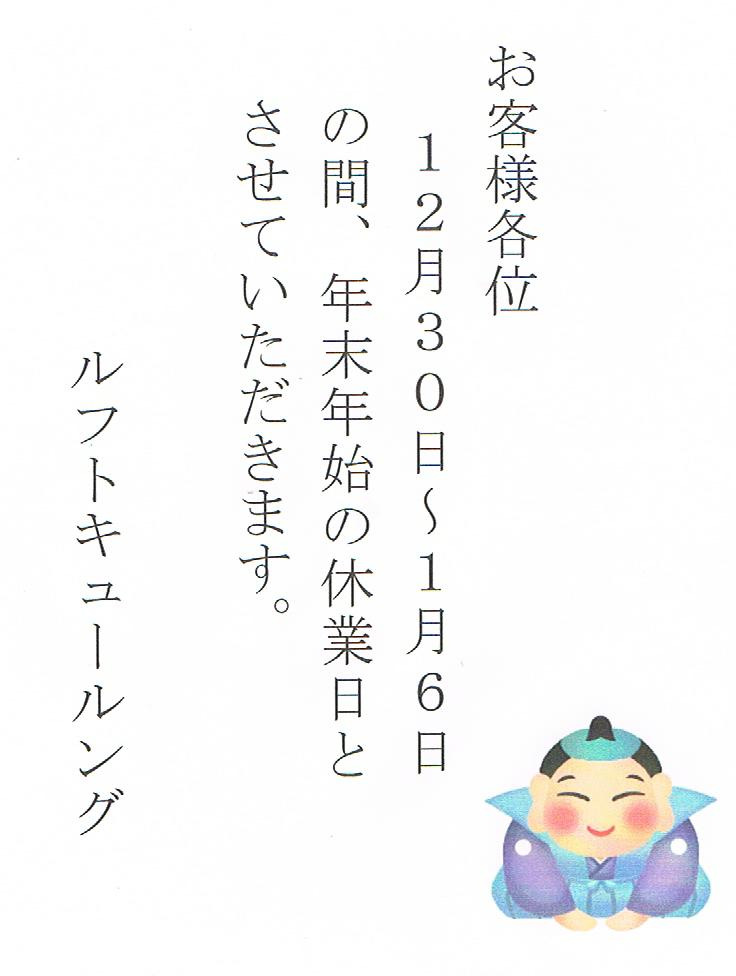 お客様各位
１２月３０日～１月６日
の間、年末年始の休業日と
させていただきます。
ルフトキュールング